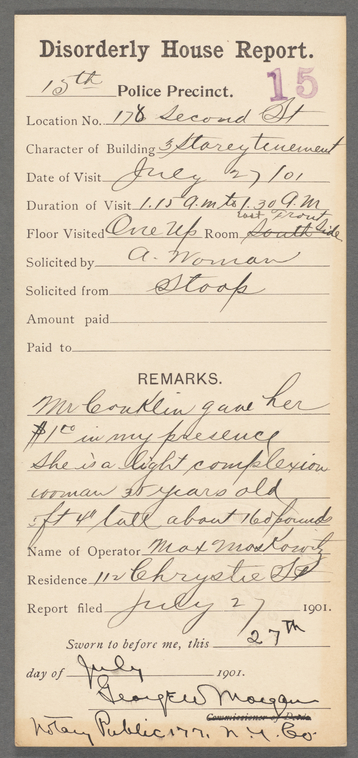 Disorderly House Report.
15th Police Precinct. 15
Location No. 178 Second St
Character of Building 3 Storey tenement
Date of Visit July 27/01
Duration of Visit 1.15 A.m to 1.30 A.M
East Front
Floor Visited One Up Room South Side
Solicited by A. Woman
Solicited from Stoop
Amount paid
Paid to
REMARKS.
Mr Conklin gave her
$1.00 in my presence
She is a light complexion
woman 35 years old
5ft 4" tall about 160 pounds
Name of Operator Max Moskowitz
Residence 112 Chrystie St
Report filed July 27 1901.
Sworn to before me, this 27th
day of July 1901.
George W Morgan
Commissioner of Deeds
Notary Public 177, N.Y. Co.